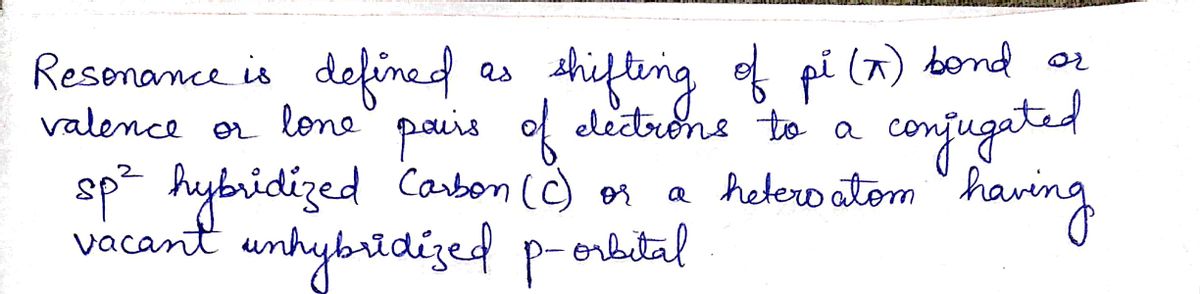 Resonance is defined as shifting of pi (π) bond or
valence or lone pairs of electrons to a conjugated
sp² hybridized Carbon (C) or a heteroatom having
vacant unhybridized p-orbital.